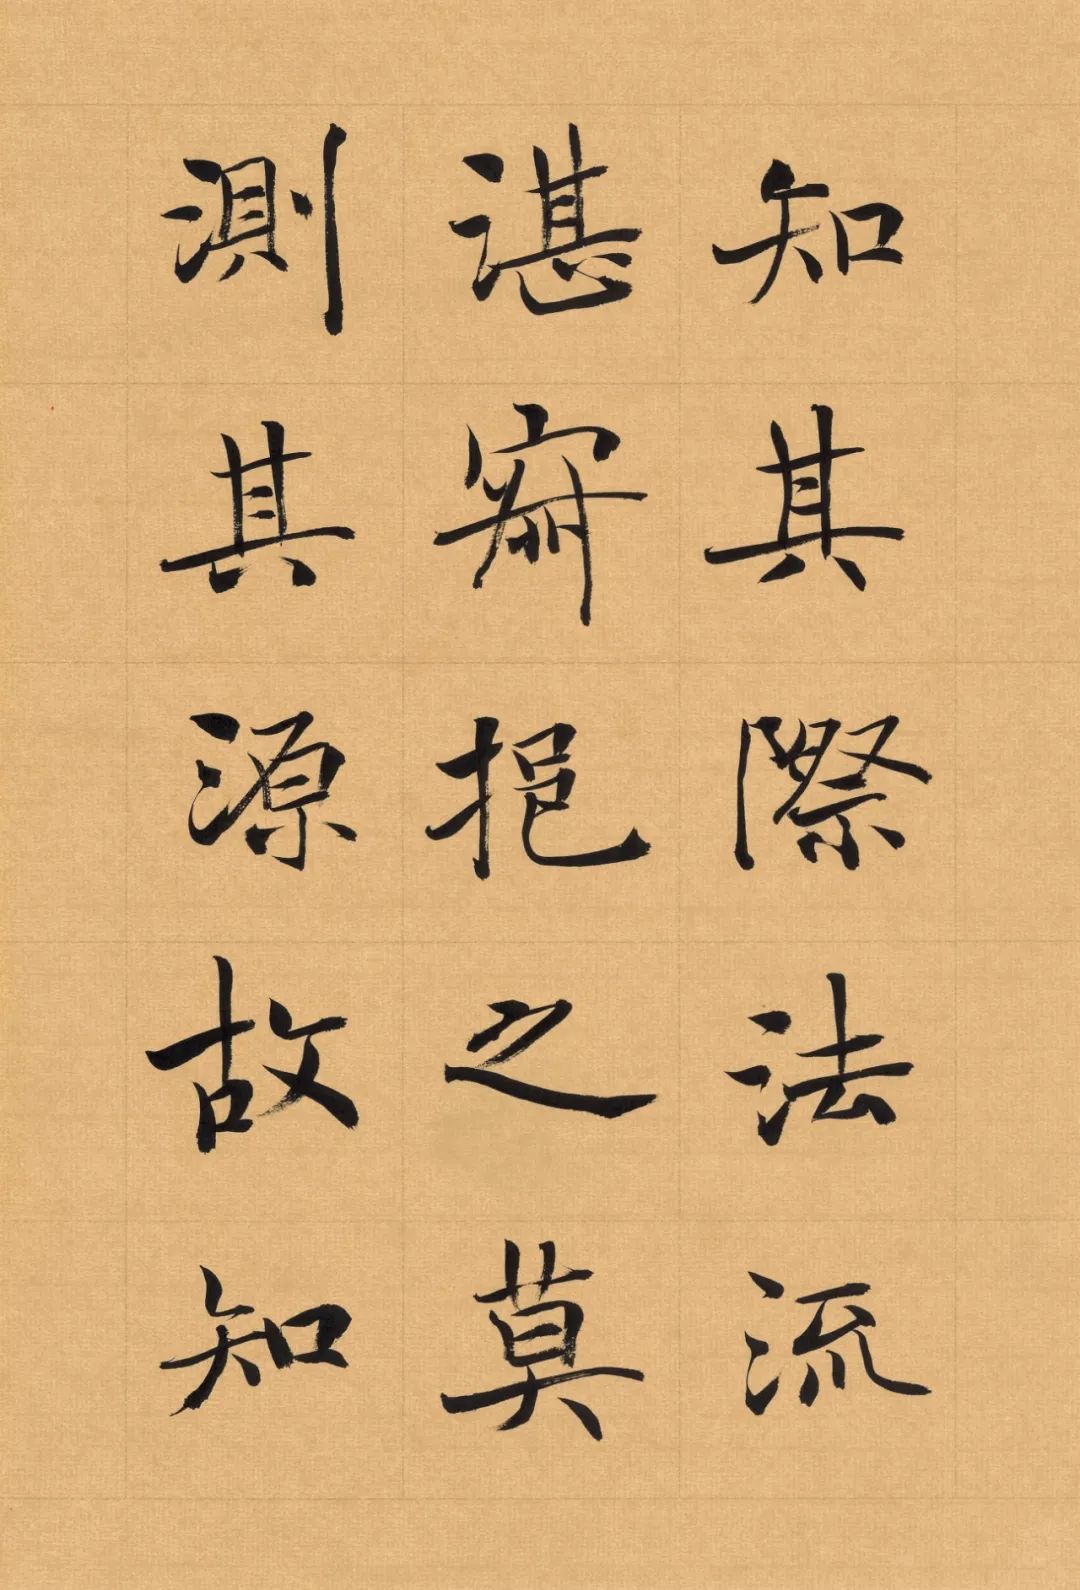 知其際法流
湛寂挹之莫
測其源故知